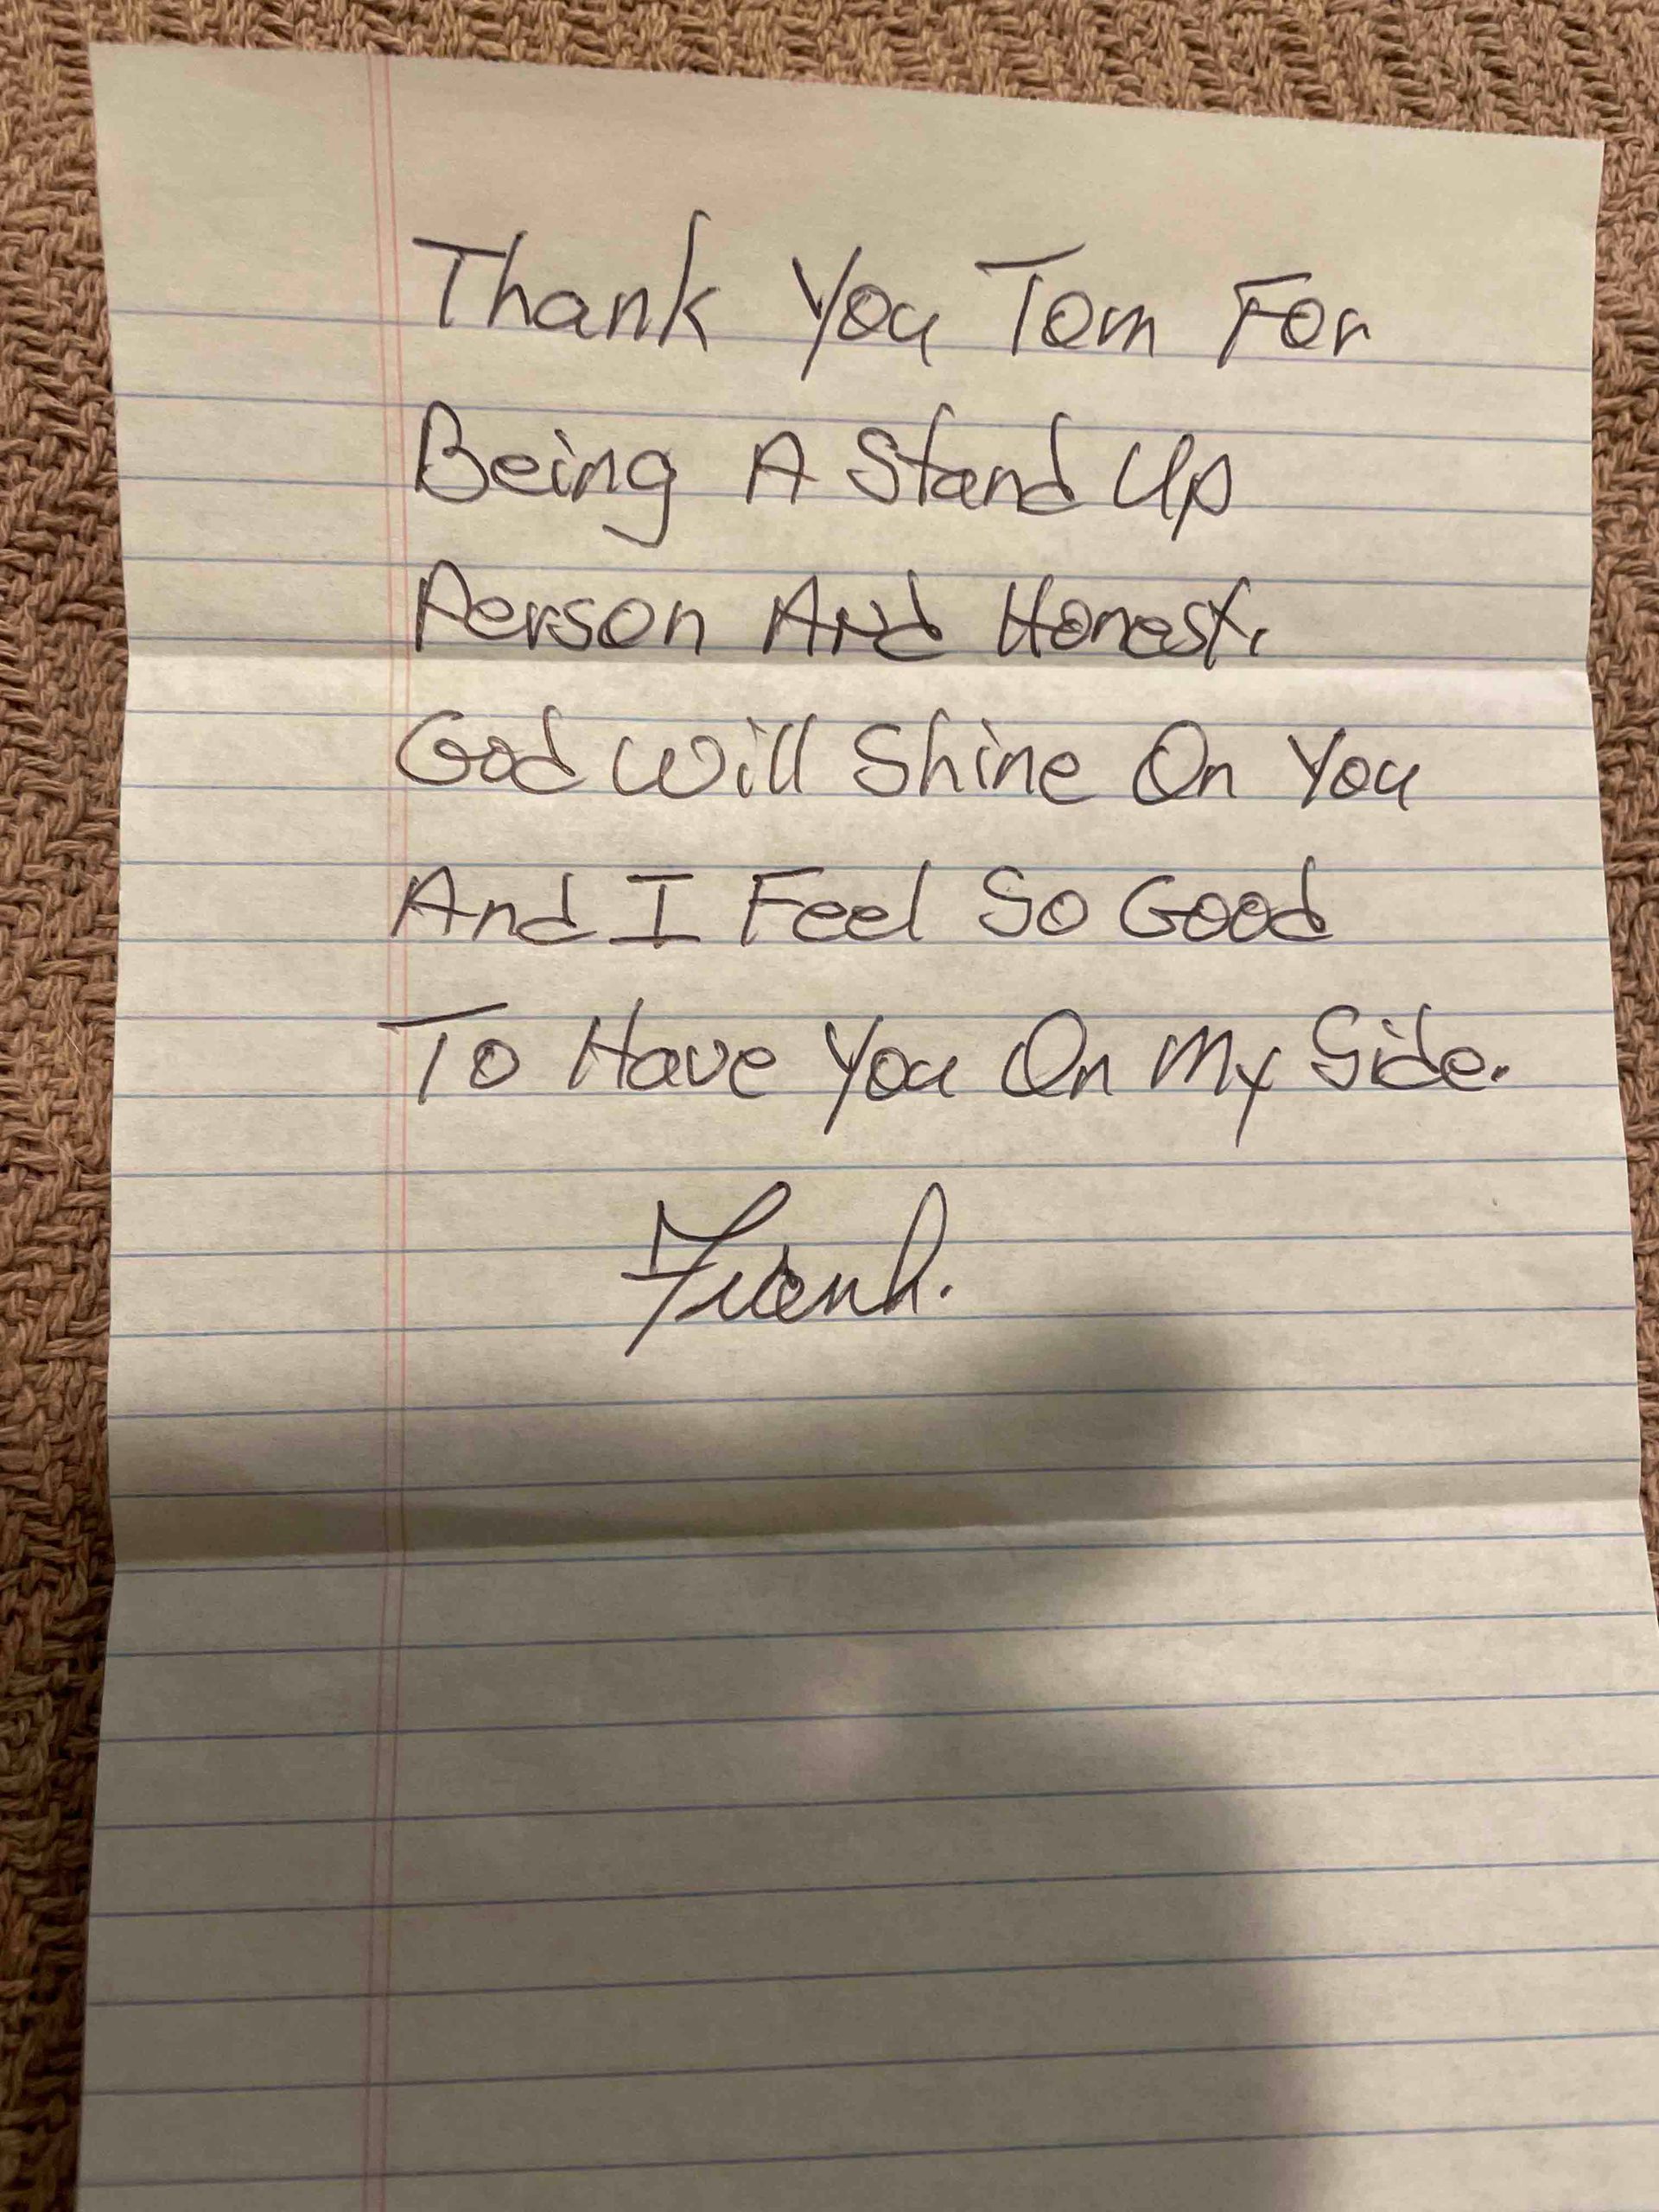 Thank You Tom For
Being A Stand Up
Person And Honest.
God Will Shine On You
And I Feel So Good
To Have You On My Side.
Frank.